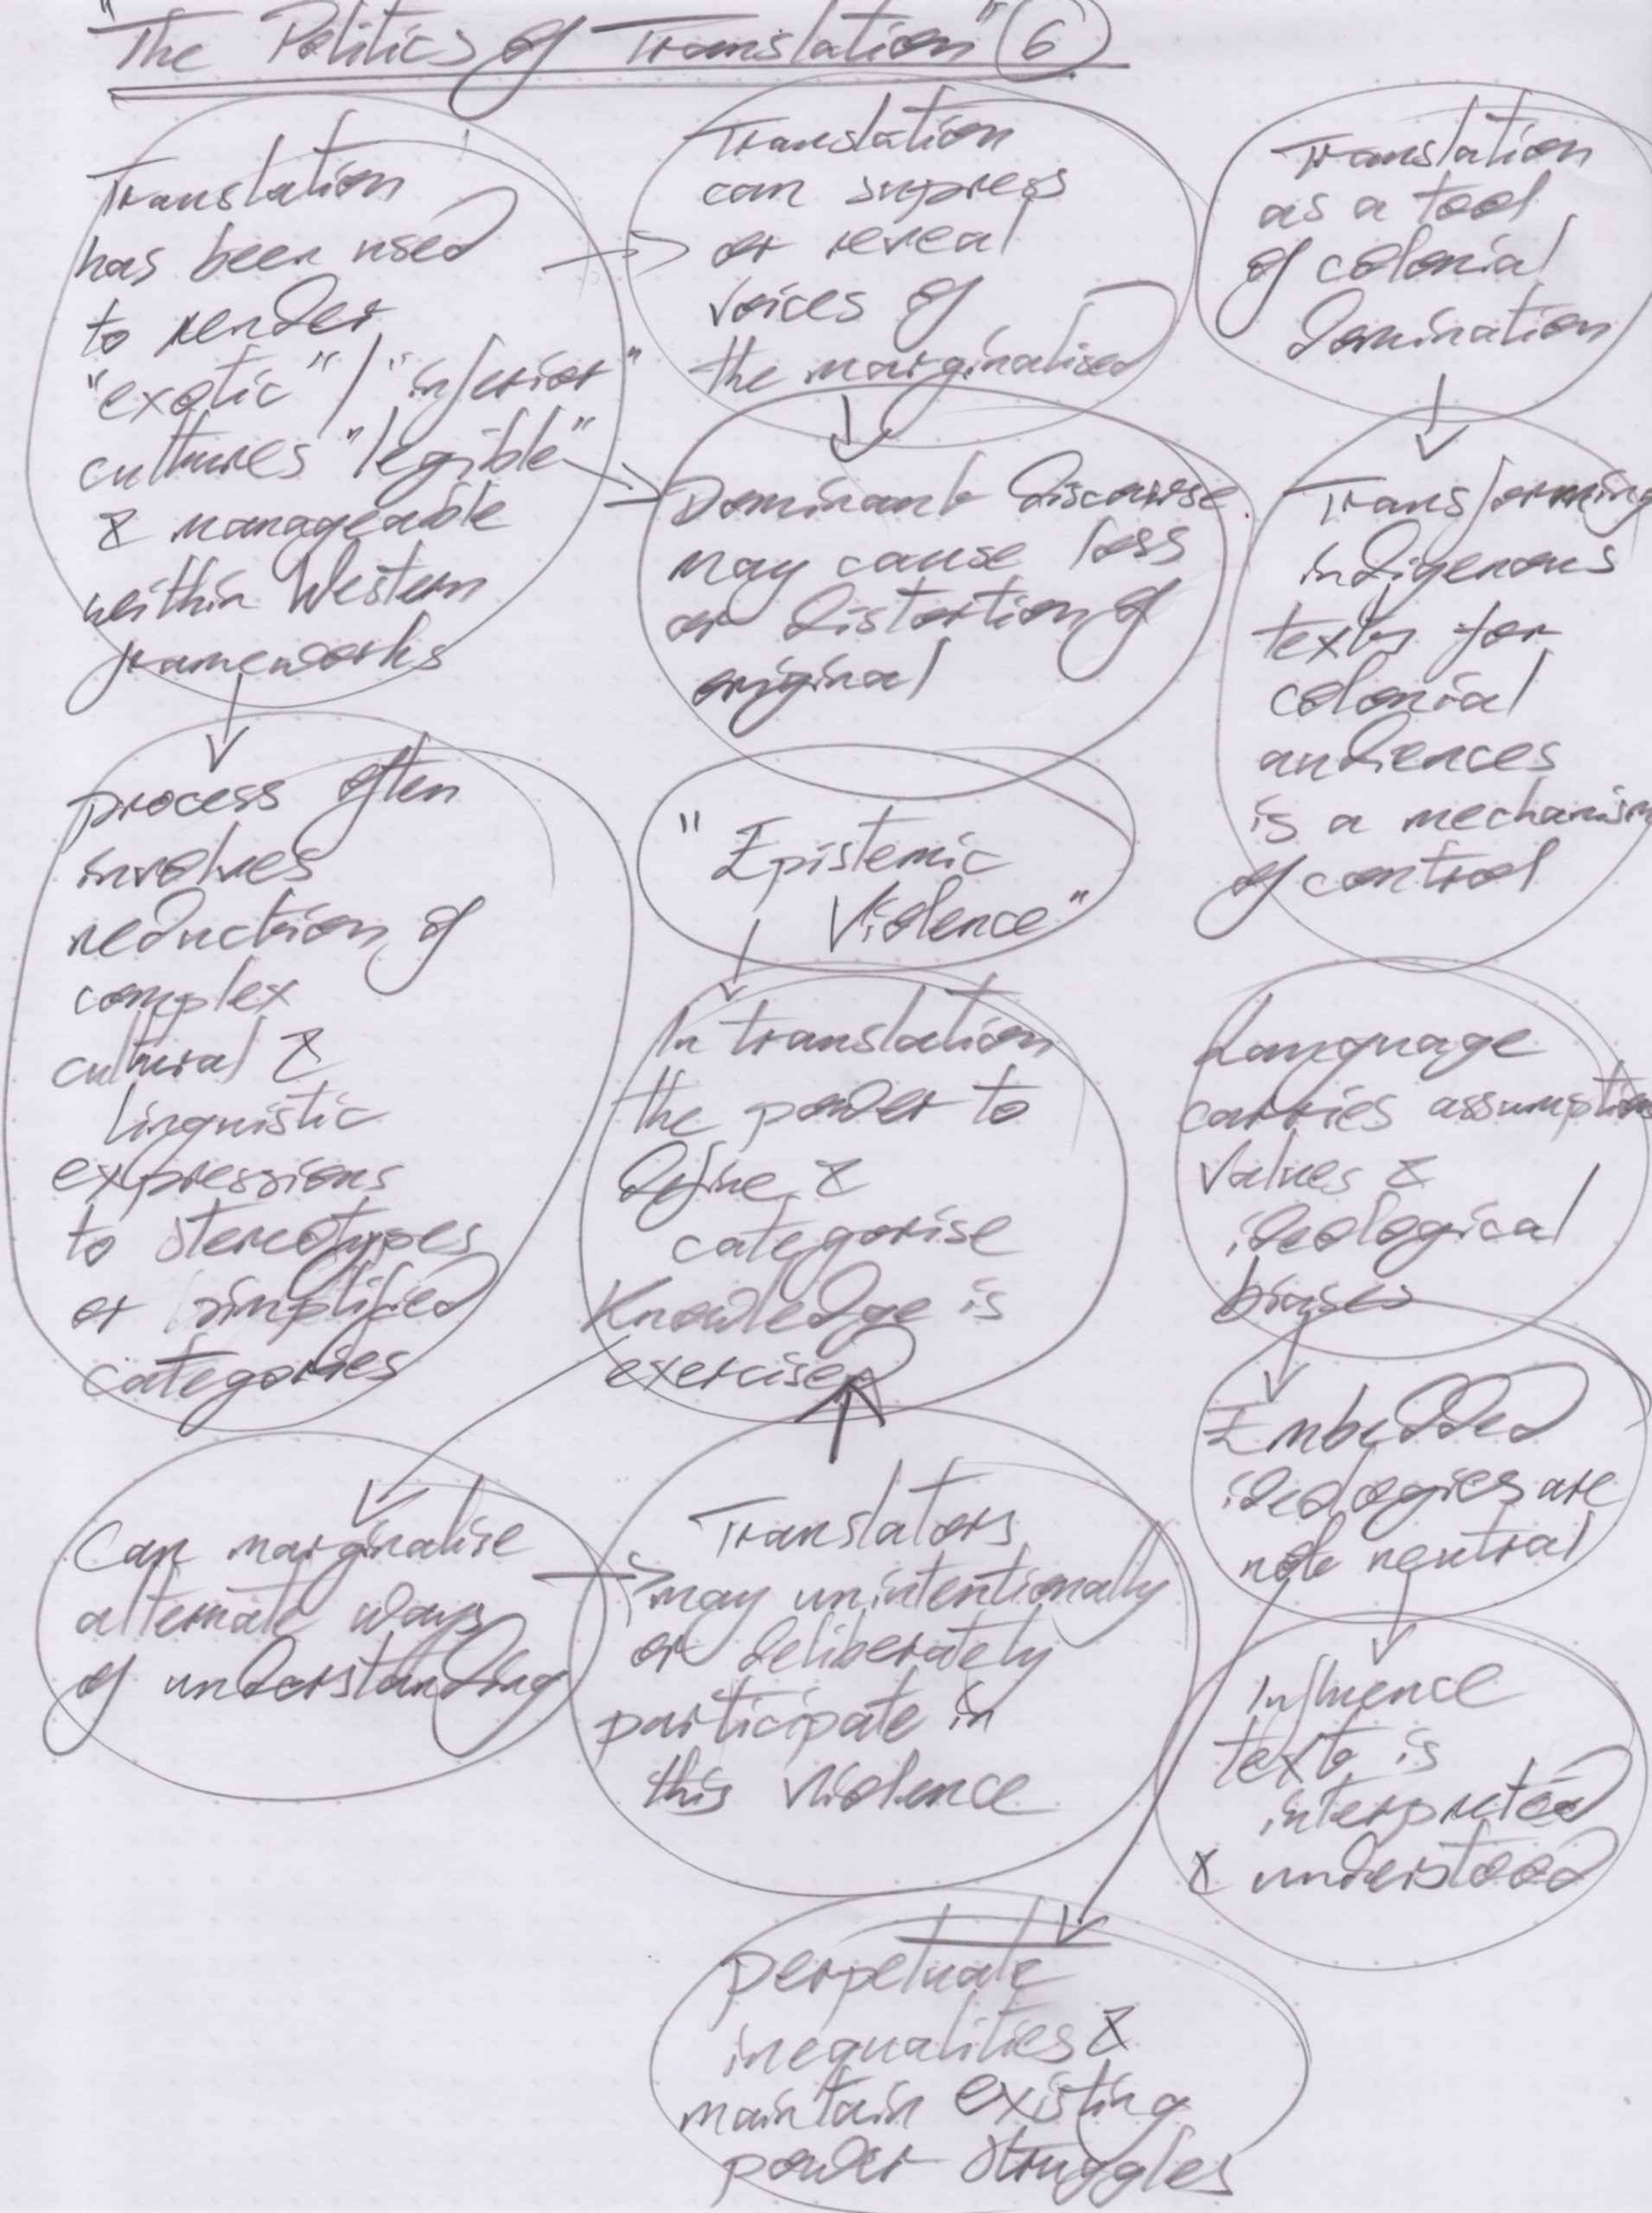 "The Politics of Translation" 6
Translation
has been used
to render
"exotic" / "inferior"
cultures "legible"
& manageable
within Western
frameworks
process often
involves
reduction of
complex
cultural &
linguistic
expressions
to stereotypes
or simplified
categories
Can marginalise
alternate ways
of understanding
Translation
can suppress
or reveal
voices of
the marginalised
Dominant discourse
may cause loss
or distortion of
original
"Epistemic
Violence"
In translation
the power to
define &
categorise
Knowledge is
exercised
Translators
may unintentionally
or deliberately
participate in
this violence
perpetuate
inequalities &
maintain existing
power struggles
Translation
as a tool
of colonial
domination
Transforming
indigenous
texts for
colonial
audiences
is a mechanism
of control
Language
carries assumptions
values &
ideological
biases
Embedded
ideologies are
not neutral
Influence
text is
interpreted
& understood